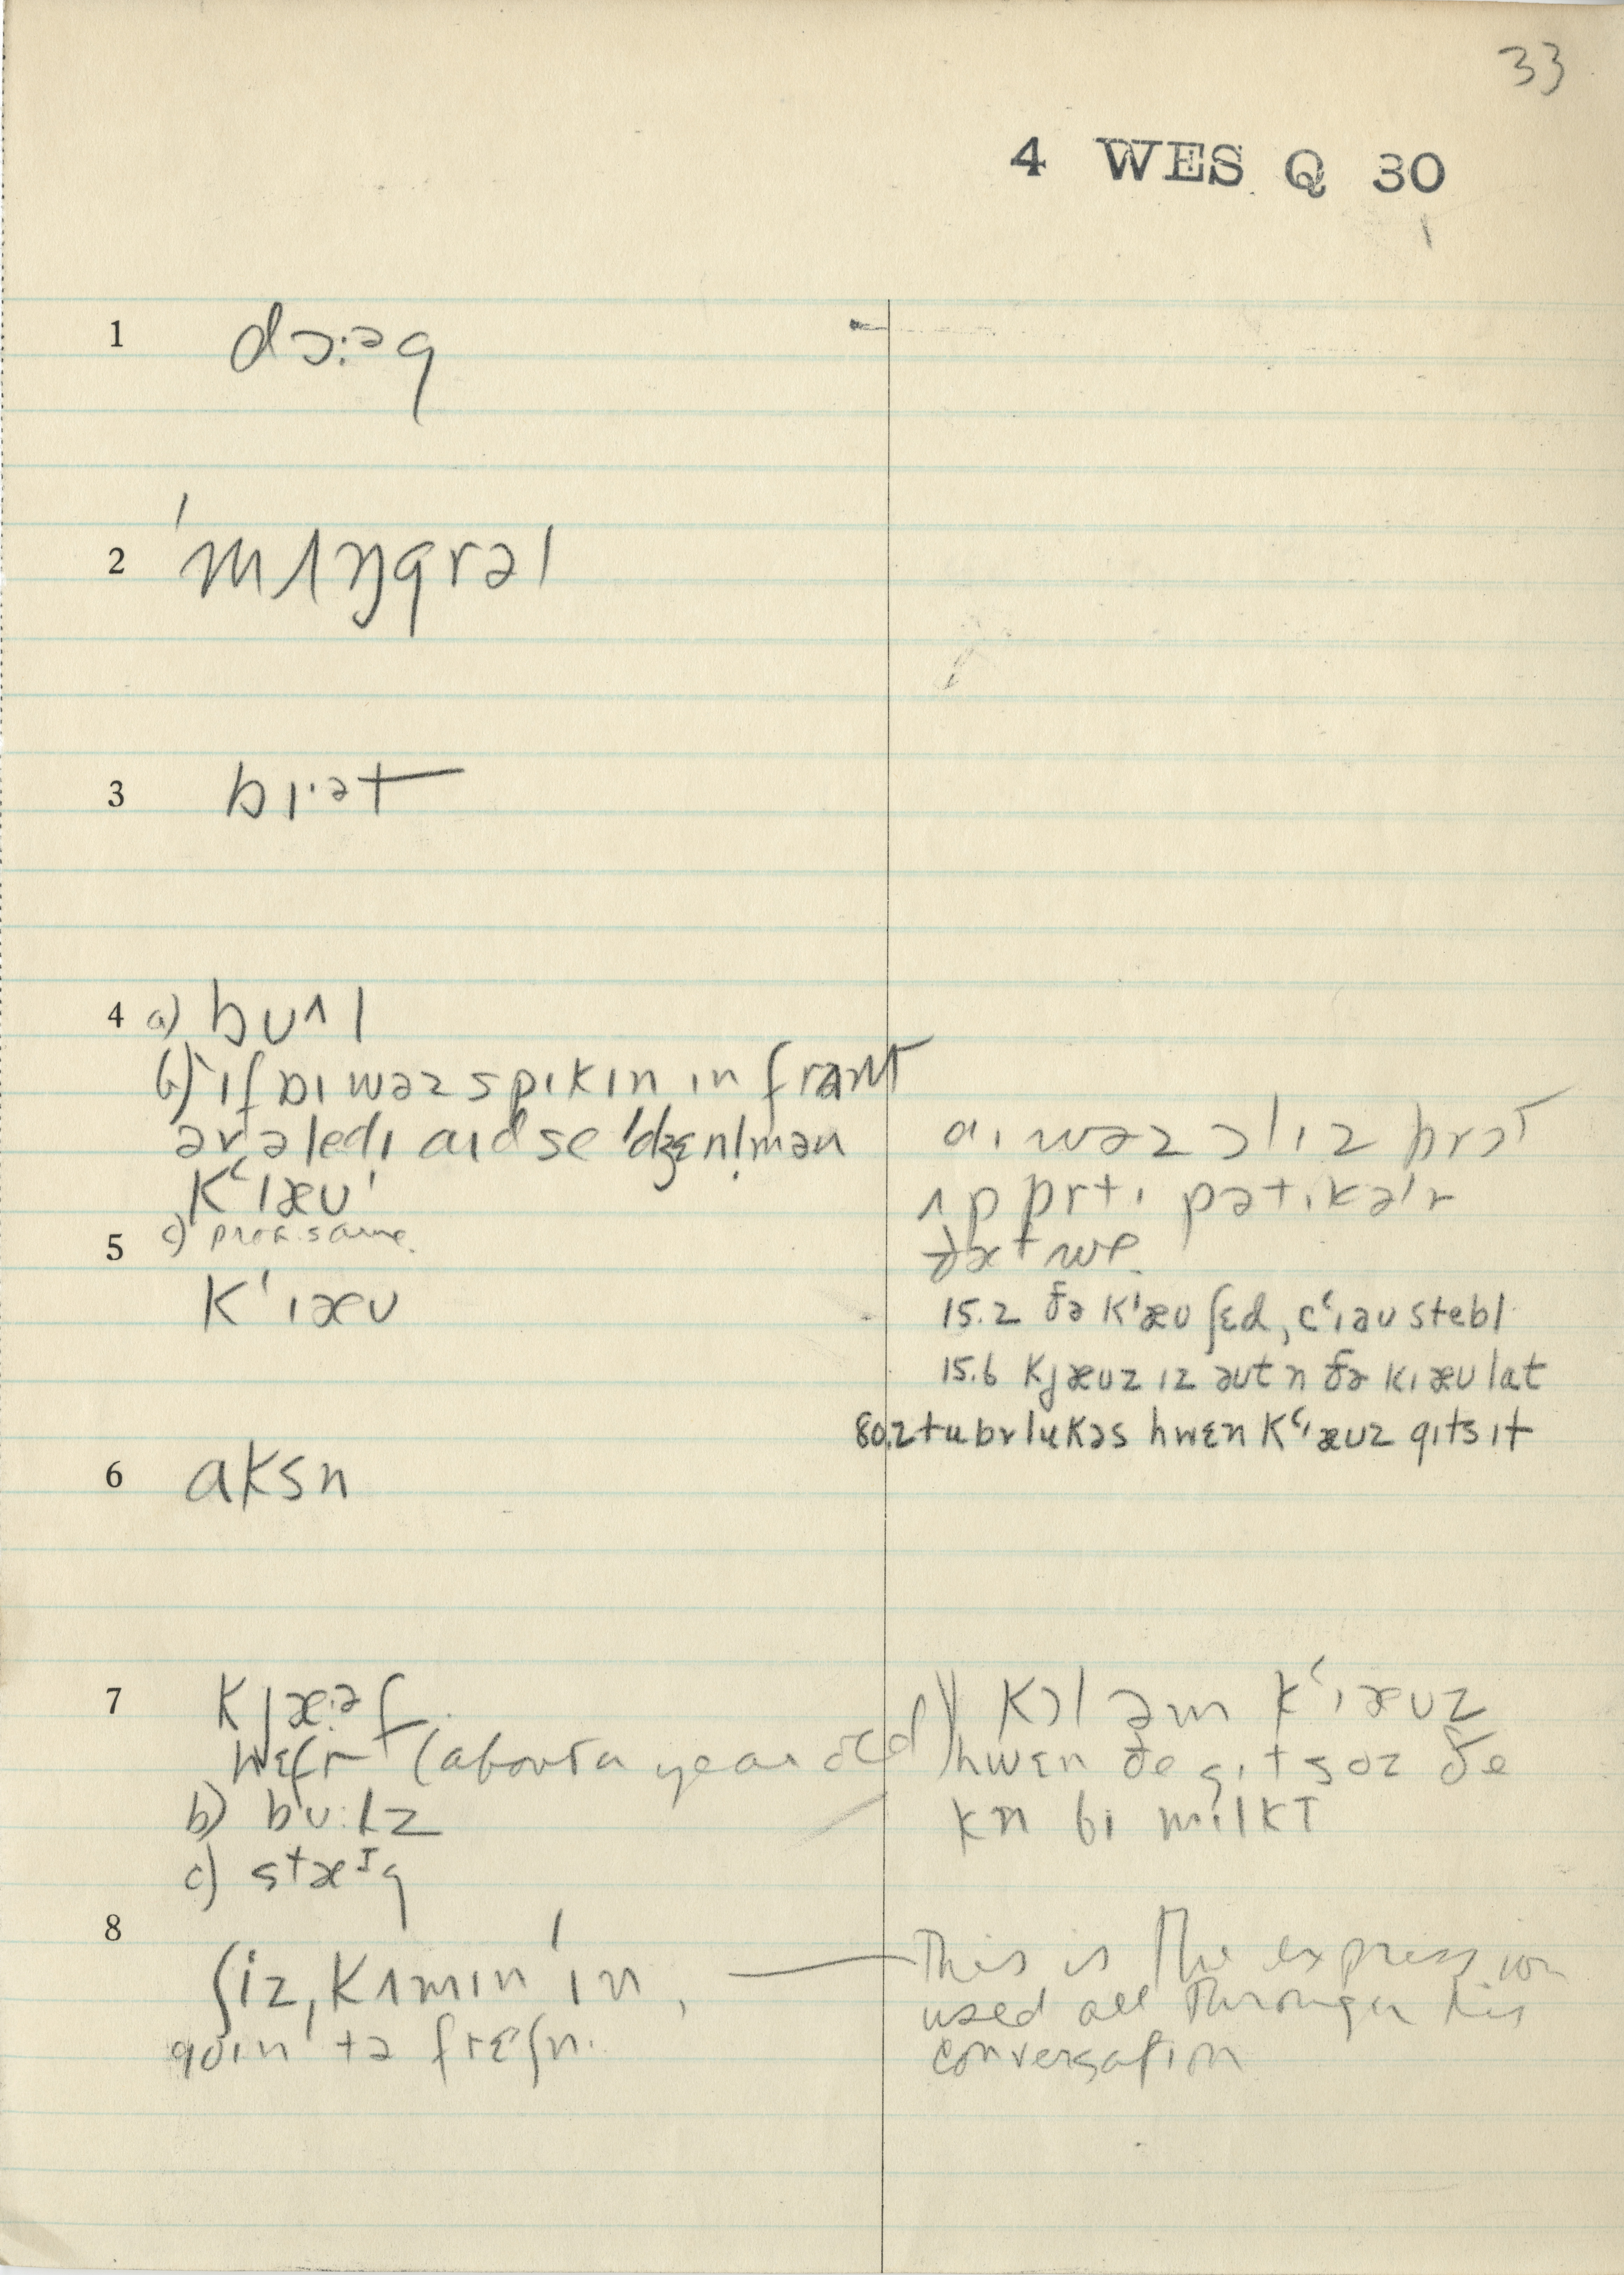 33
4 WES Q 30
1 dɔ:əg
2 'mʌŋgrəl
3 bɪ·ət
4 a) bʊ^l
b) ɪf ɒɪ wəz spɪkɪn ɪn frant
ər ə ledɪ aɪd se 'dʒɛnl̩mən
K‘ɪæʊ'
c) prok. same.
aɪ wəz ɔlɪz brɔt
ʌp prtɪ pətɪkəlr
ðæt we.
5 K‘ɪæʊ
15.2 ðə K'æʊ ʃɛd, c‘ɪəʊ stebl
15.6 Kjæʊz ɪz əʊt n ðə kɪæʊ lat
80.2 tubrlukəs hwɛn K‘ɪæʊz gɪts ɪt
6 aksn
7 Kjæ:əf.
hɛfr (about a year old)
b) bʊ:lz
c) stæᴵg
Kɔl əm K‘ɪæʊz
hwɛn ðe gɪt soz ðe
kn bɪ mɪlkt
8 ʃiz, Kʌmɪn 'ɪn,
goɪn tə frɛʃn.
This is the expression
used all through his
conversation